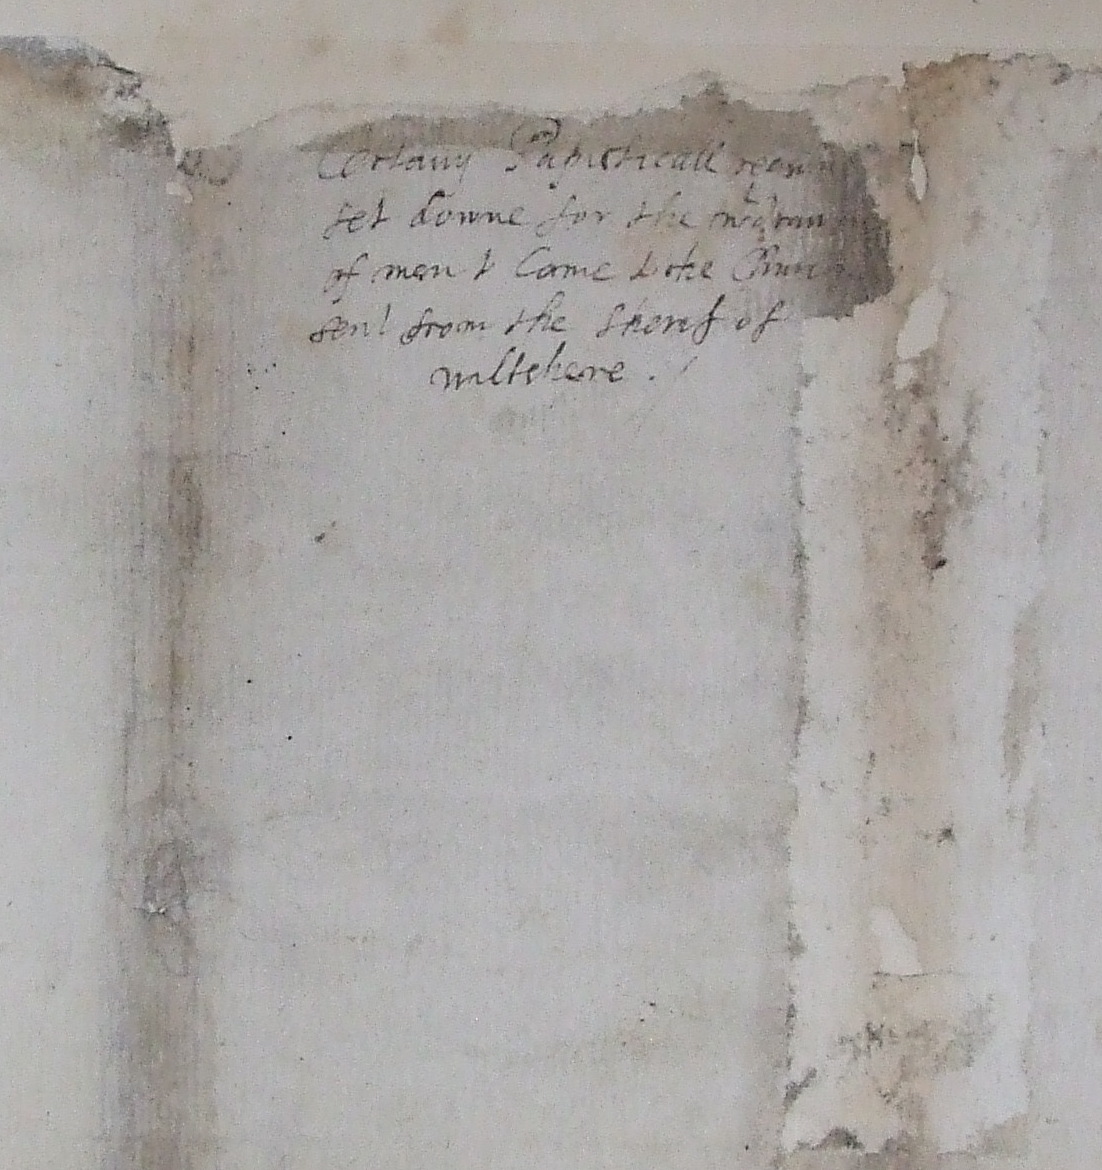 Certany Papisticall reasons
set downe for the
of men t Come to the Churc
sent from the Shoref of
wiltshere .